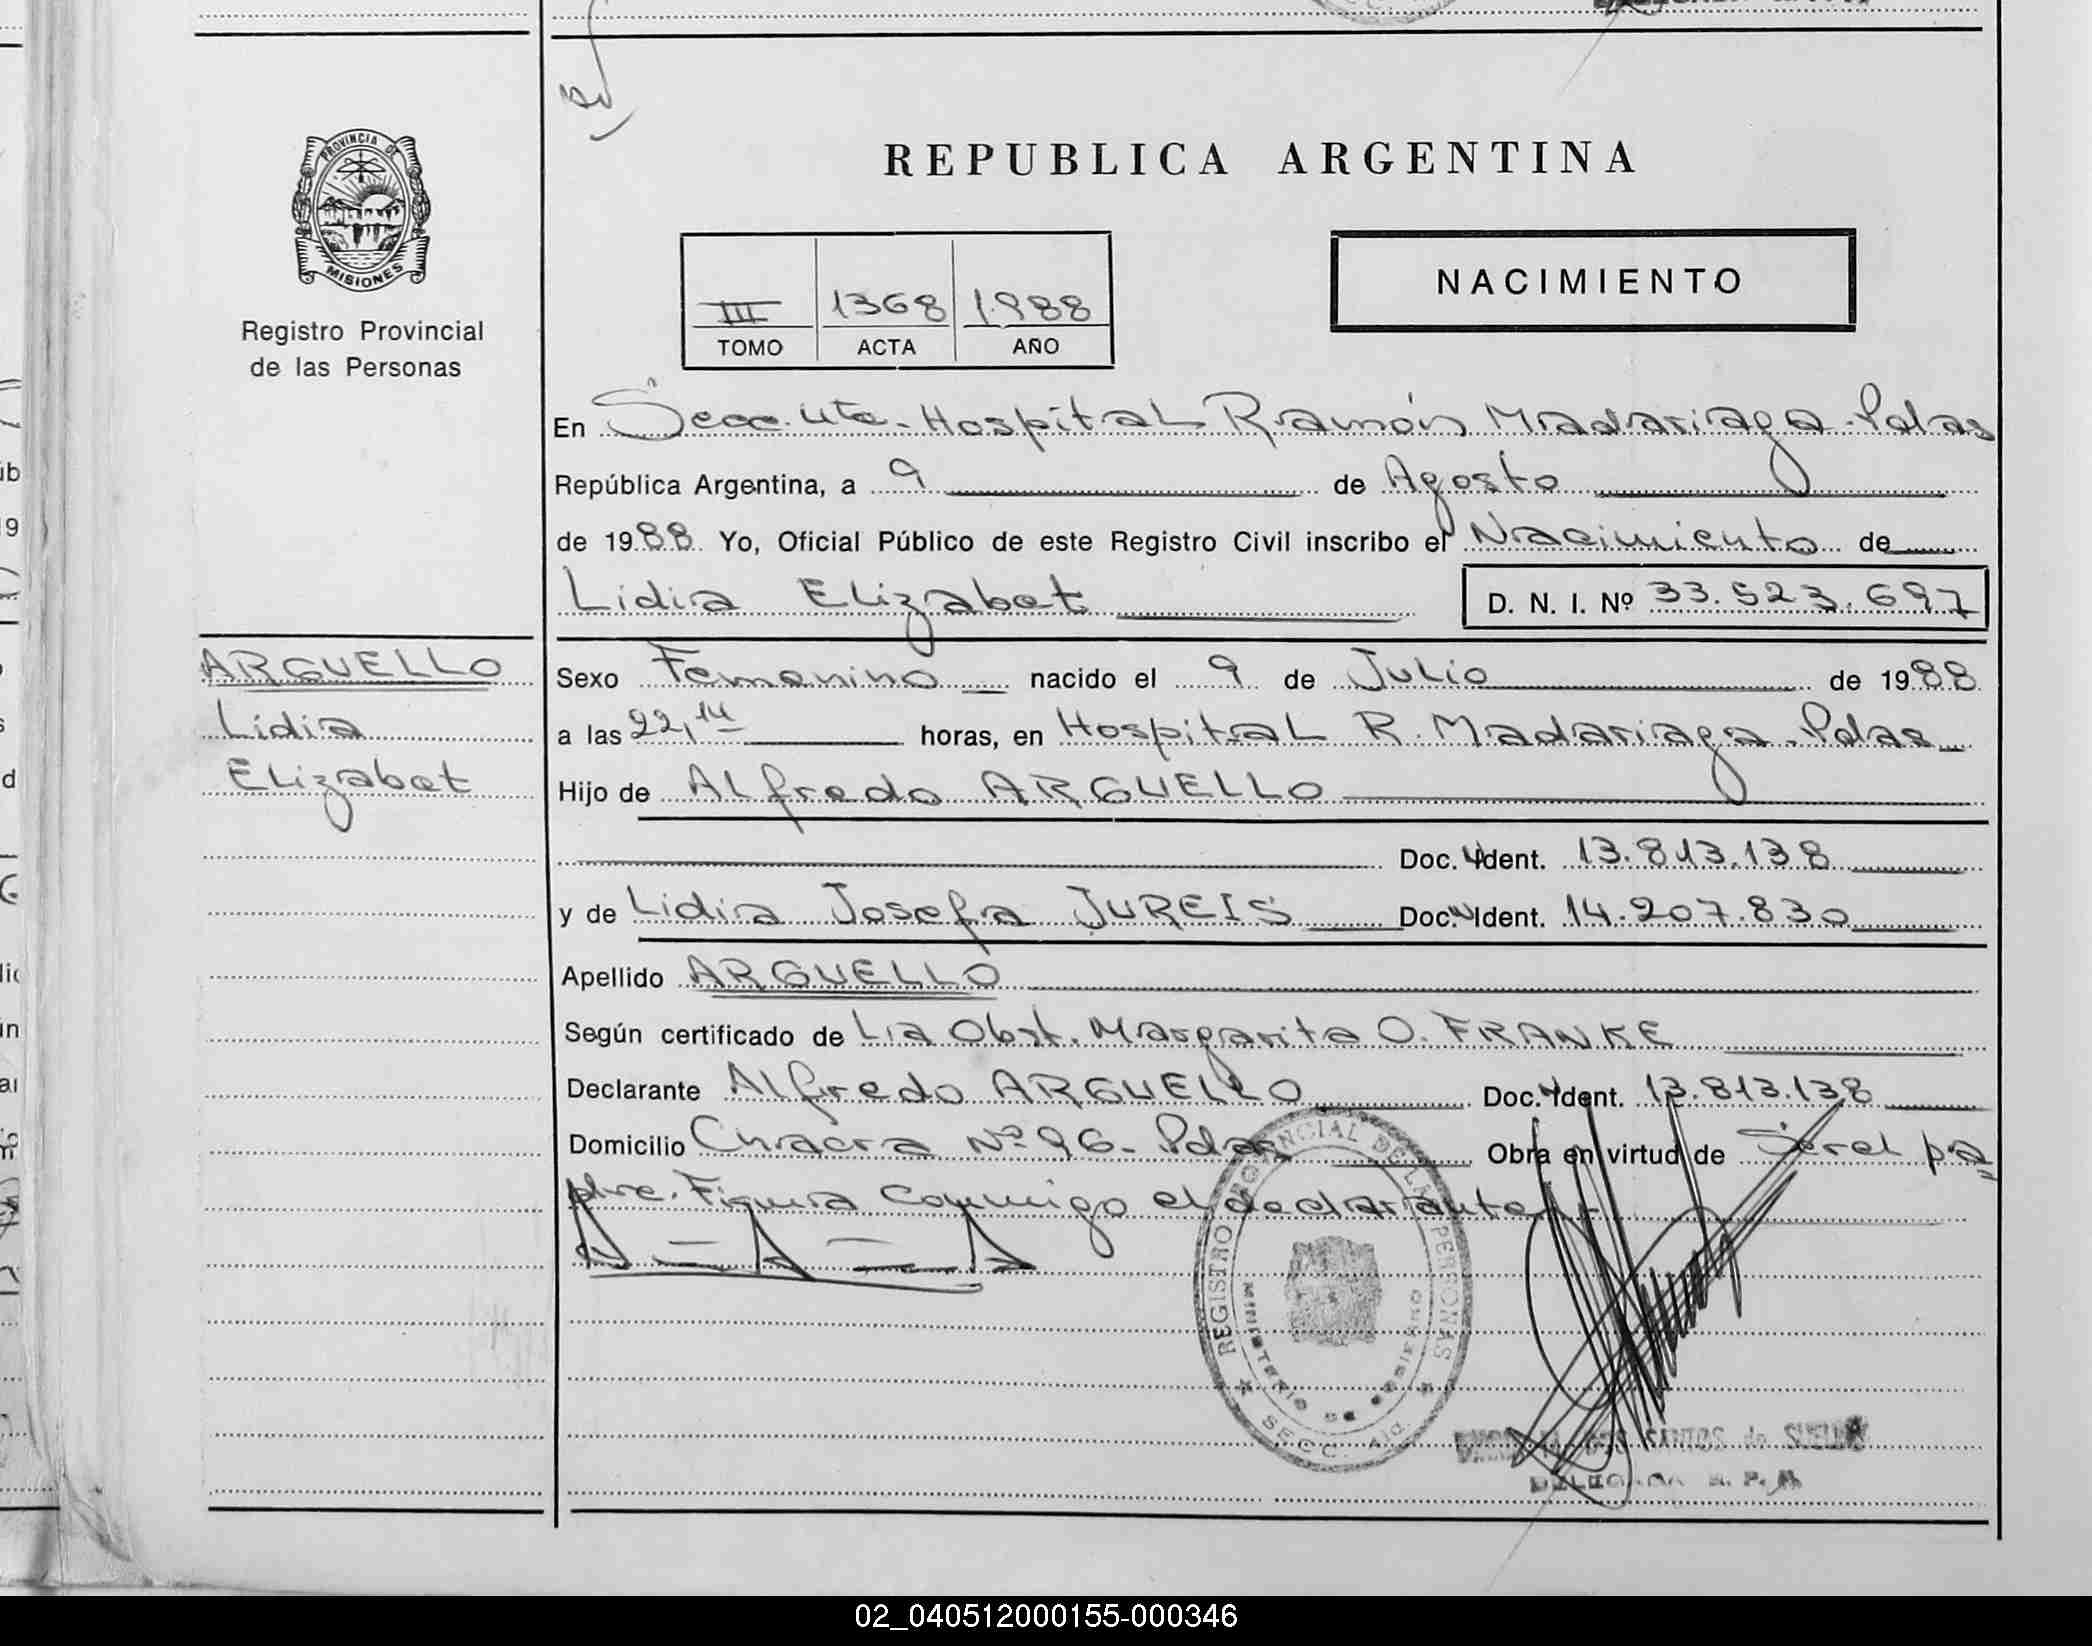 PROVINCIA DE
MISIONES
Registro Provincial
de las Personas
REPUBLICA ARGENTINA
III 1368 1.988
TOMO ACTA AÑO
NACIMIENTO
En Secc. 4ta. Hospital Ramón Madariaga - Pdas
República Argentina, a 9 de Agosto
de 1988 Yo, Oficial Público de este Registro Civil inscribo el Nacimiento de
Lidia Elizabet D. N. I. Nº 33.523.697
ARGUELLO
Lidia
Elizabet
Sexo Femenino nacido el 9 de Julio de 1988
a las 22,14 horas, en Hospital R. Madariaga - Pdas
Hijo de Alfredo ARGUELLO
Doc. Ident. 13.813.138
y de Lidia Josefa JUREIS Doc. Ident. 14.207.830
Apellido ARGUELLO
Según certificado de Lia Obst. Margarita O. FRANKE
Declarante Alfredo ARGUELLO Doc. Ident. 13.813.138
Domicilio Chacra Nº 96 - Pdas Obra en virtud de Ser el pa
dre. Firma conmigo el declarante
REGISTRO PROVINCIAL DE LAS PERSONAS
MINISTERIO DE GOBIERNO
SECC. 4ta.
02_040512000155-000346